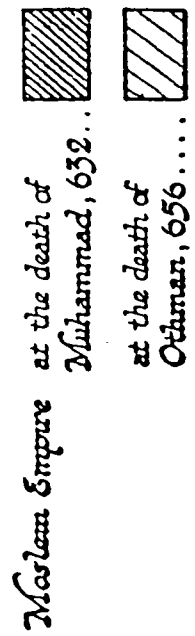 Moslem Empire at the death of
Muhammad, 632..
at the death of
Othman, 656....